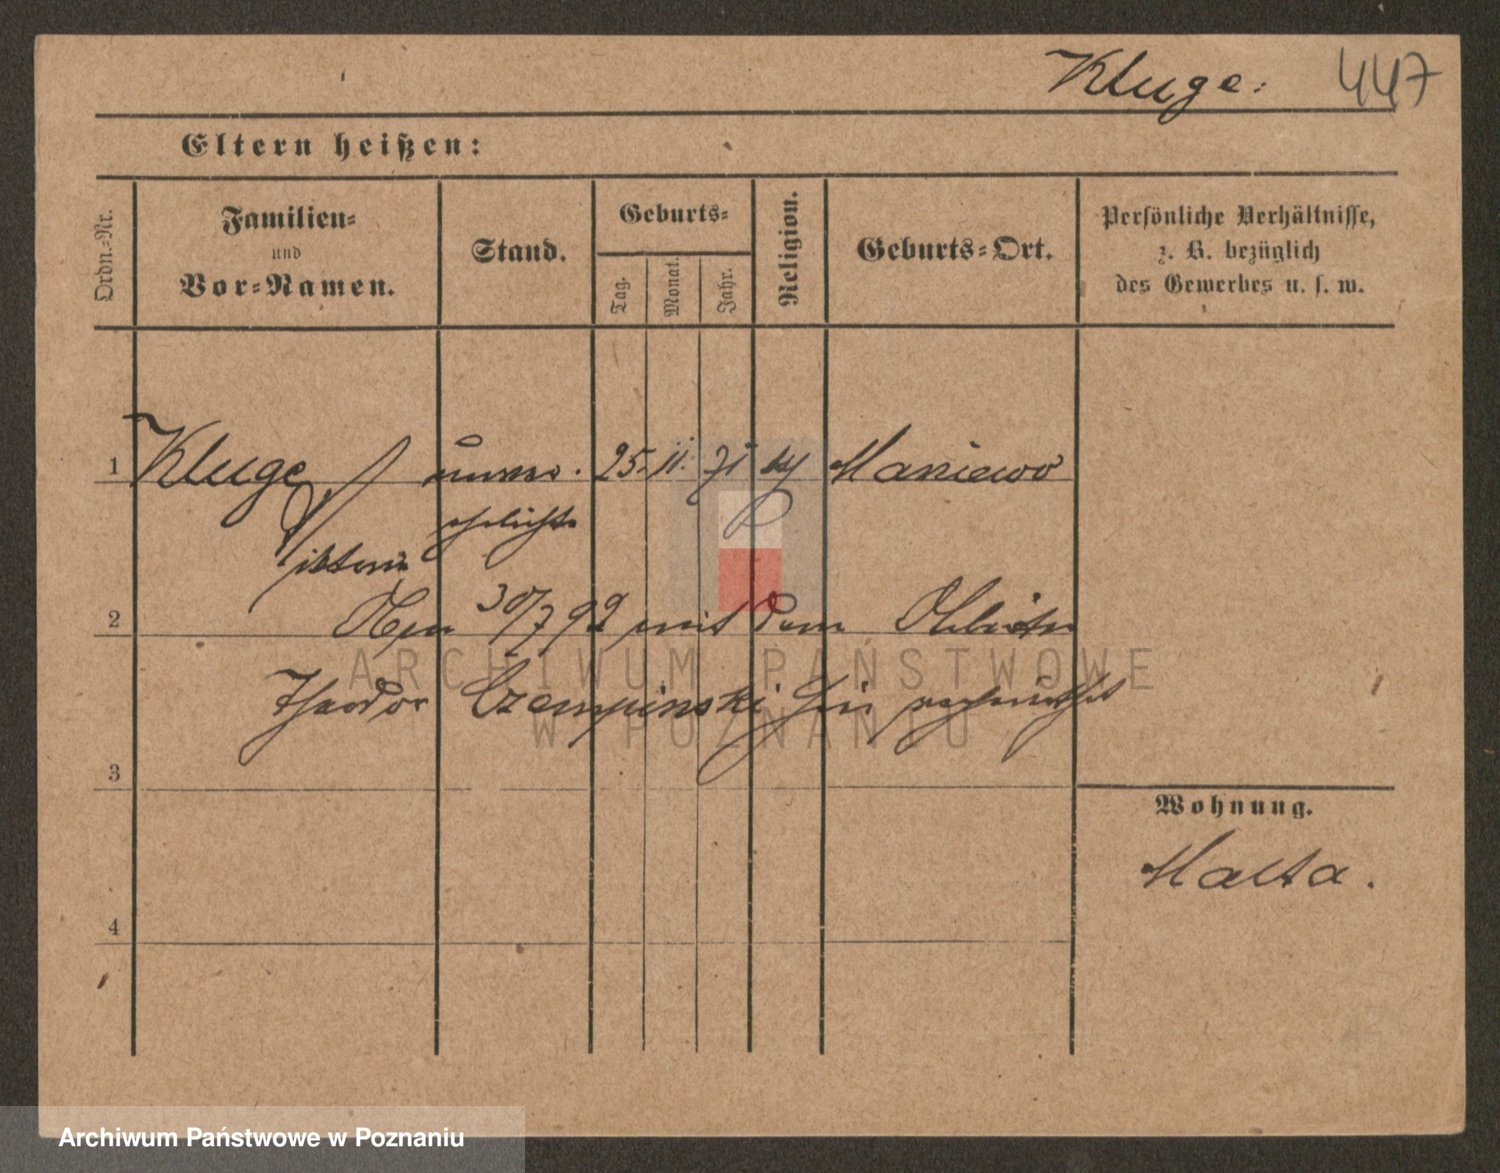 Kluge.
447
Eltern heißen:
Ordn.-Nr.
Familien-
und
Vor-Namen.
Stand.
Geburts-
Tag.
Monat.
Jahr.
Religion.
Geburts-Ort.
Persönliche Verhältnisse,
z. B. bezüglich
des Gewerbes u. s. w.
1 Kluge unver- 25. 11. 71 Maniewo
ehelicht
2 30/7 92 mit dem
ARCHIWUM PAŃSTWOWE
Theodor Czempinski hier
W POZNANIU
3
Wohnung.
Malta.
4
Archiwum Państwowe w Poznaniu